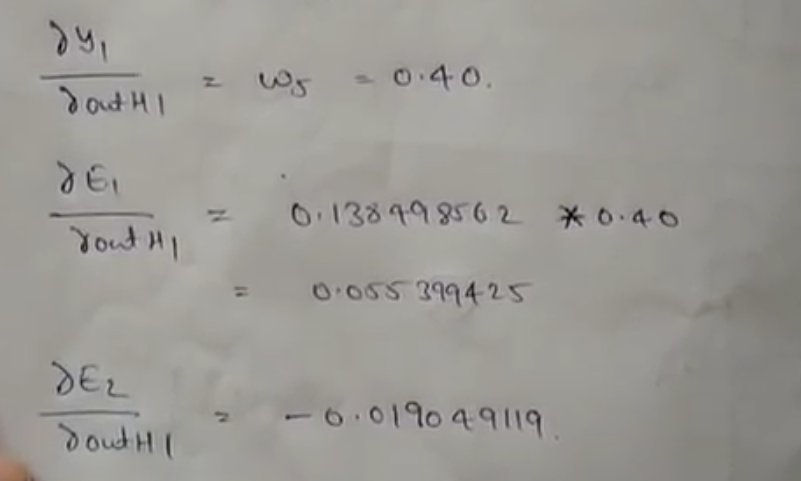 ∂y₁/∂outH1 = w₅ = 0.40.
∂E₁/∂outH₁ = 0.138498562 * 0.40
= 0.055399425
∂E₂/∂outH1 = -0.019049119.